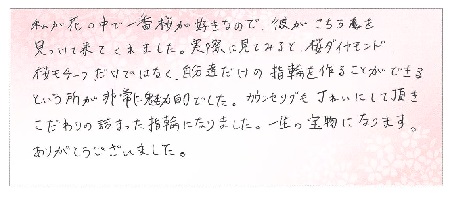 私が花の中で一番桜が好きなので、彼がこちらを
見つけて来てくれました。実際に見てみると、桜ダイヤモンド
桜モチーフだけではなく、自分達だけの指輪を作ることができる
という所が非常に魅力的でした。カウンセリングも丁ねいにして頂き
こだわりの詰まった指輪になりました。一生の宝物になります。
ありがとうございました。